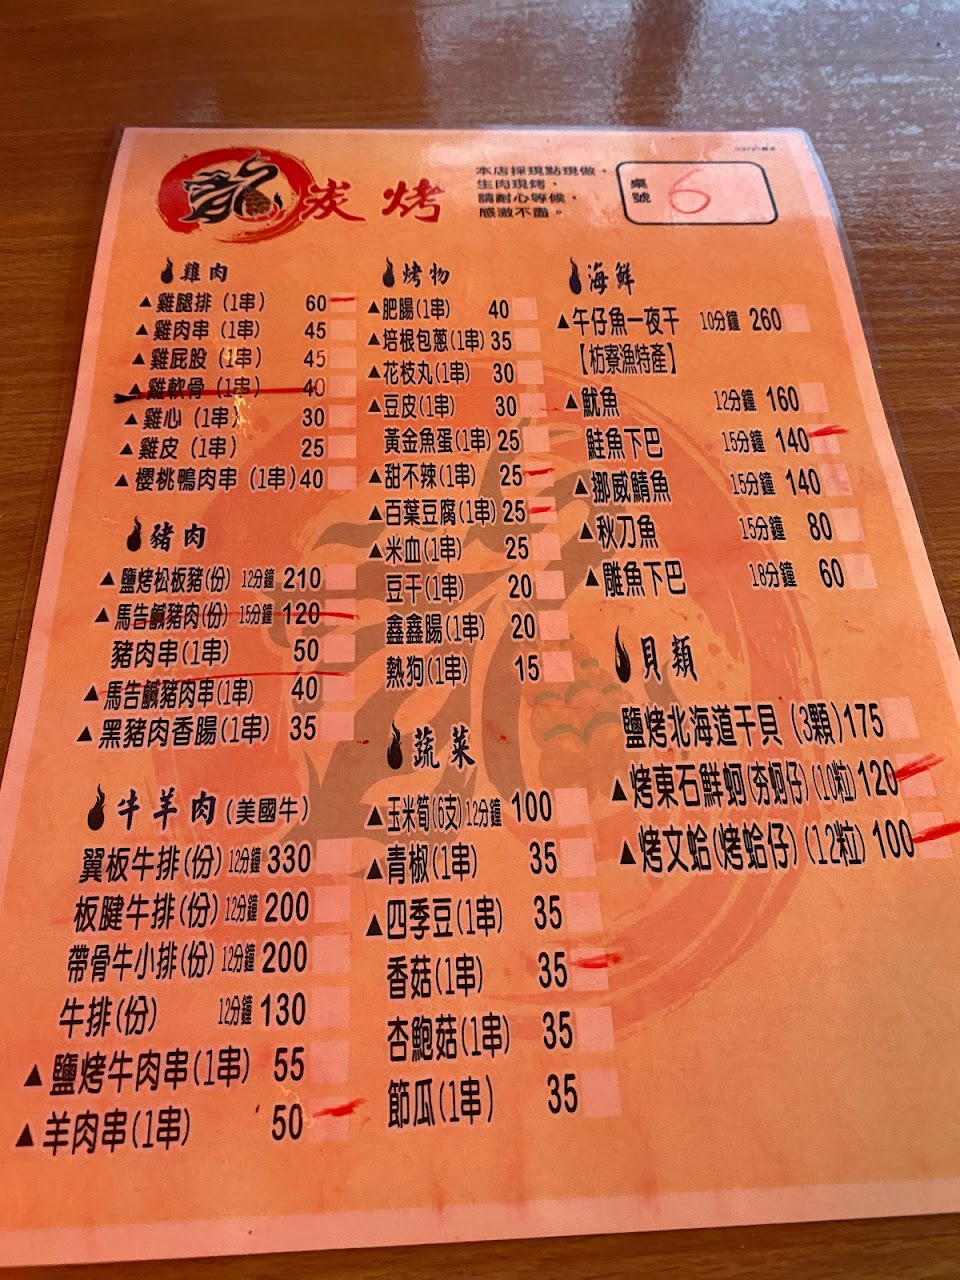 炭烤
本店採現點現做，
生肉現烤，
請耐心等候，
感激不盡。
桌號 6
雞肉
▲雞腿排 (1串) 60
▲雞肉串 (1串) 45
▲雞屁股 (1串) 45
▲雞軟骨 (1串) 40
▲雞心 (1串) 30
▲雞皮 (1串) 25
▲櫻桃鴨肉串 (1串) 40
豬肉
▲鹽烤松板豬(份) 12分鐘 210
▲馬告鹹豬肉(份) 15分鐘 120
豬肉串(1串) 50
▲馬告鹹豬肉串(1串) 40
▲黑豬肉香腸(1串) 35
牛羊肉(美國牛)
翼板牛排(份) 12分鐘 330
板腱牛排(份) 12分鐘 200
帶骨牛小排(份) 12分鐘 200
牛排(份) 12分鐘 130
▲鹽烤牛肉串(1串) 55
▲羊肉串(1串) 50
烤物
▲肥腸(1串) 40
▲培根包蔥(1串) 35
▲花枝丸(1串) 30
▲豆皮(1串) 30
黃金魚蛋(1串) 25
▲甜不辣(1串) 25
▲百葉豆腐(1串) 25
▲米血(1串) 25
豆干(1串) 20
鑫鑫腸(1串) 20
熱狗(1串) 15
蔬菜
▲玉米筍(6支) 12分鐘 100
▲青椒(1串) 35
▲四季豆(1串) 35
香菇(1串) 35
杏鮑菇(1串) 35
節瓜(1串) 35
海鮮
▲午仔魚一夜干 10分鐘 260
【枋寮漁特產】
▲魷魚 12分鐘 160
鮭魚下巴 15分鐘 140
▲挪威鯖魚 15分鐘 140
▲秋刀魚 15分鐘 80
▲鵰魚下巴 18分鐘 60
貝類
鹽烤北海道干貝 (3顆) 175
▲烤東石鮮蚵(夯蚵仔)(10粒) 120
▲烤文蛤(烤蛤仔)(12粒) 100